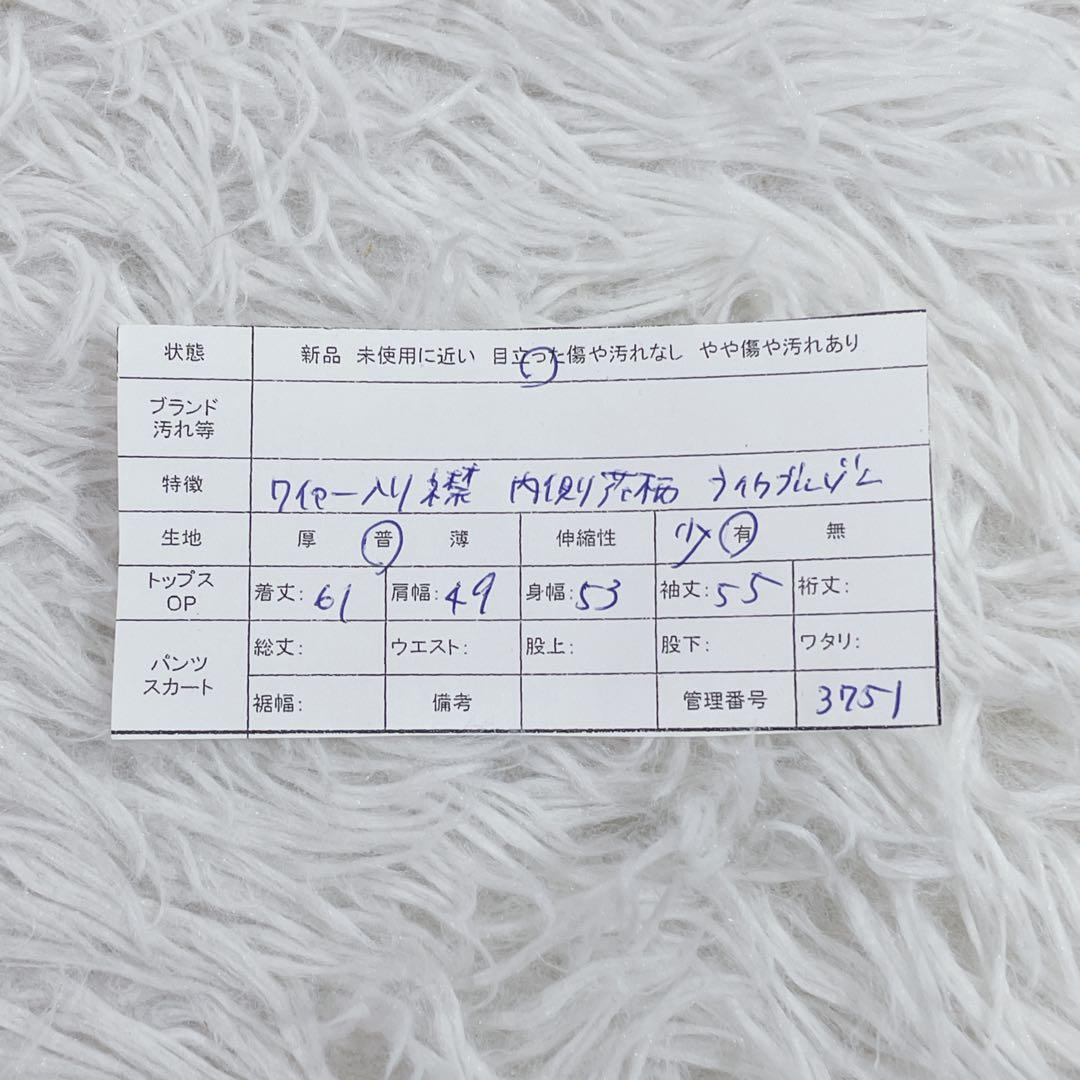 状態 新品 未使用に近い 目立った傷や汚れなし やや傷や汚れあり
ブランド
汚れ等
特徴 ワイヤー入り襟 内側花柄 ライクブルゾン
生地 厚 普 薄 伸縮性 少 有 無
トップス
OP
着丈: 61 肩幅: 49 身幅: 53 袖丈: 55 裄丈:
パンツ
スカート
総丈: ウエスト: 股上: 股下: ワタリ:
裾幅: 備考 管理番号 3751